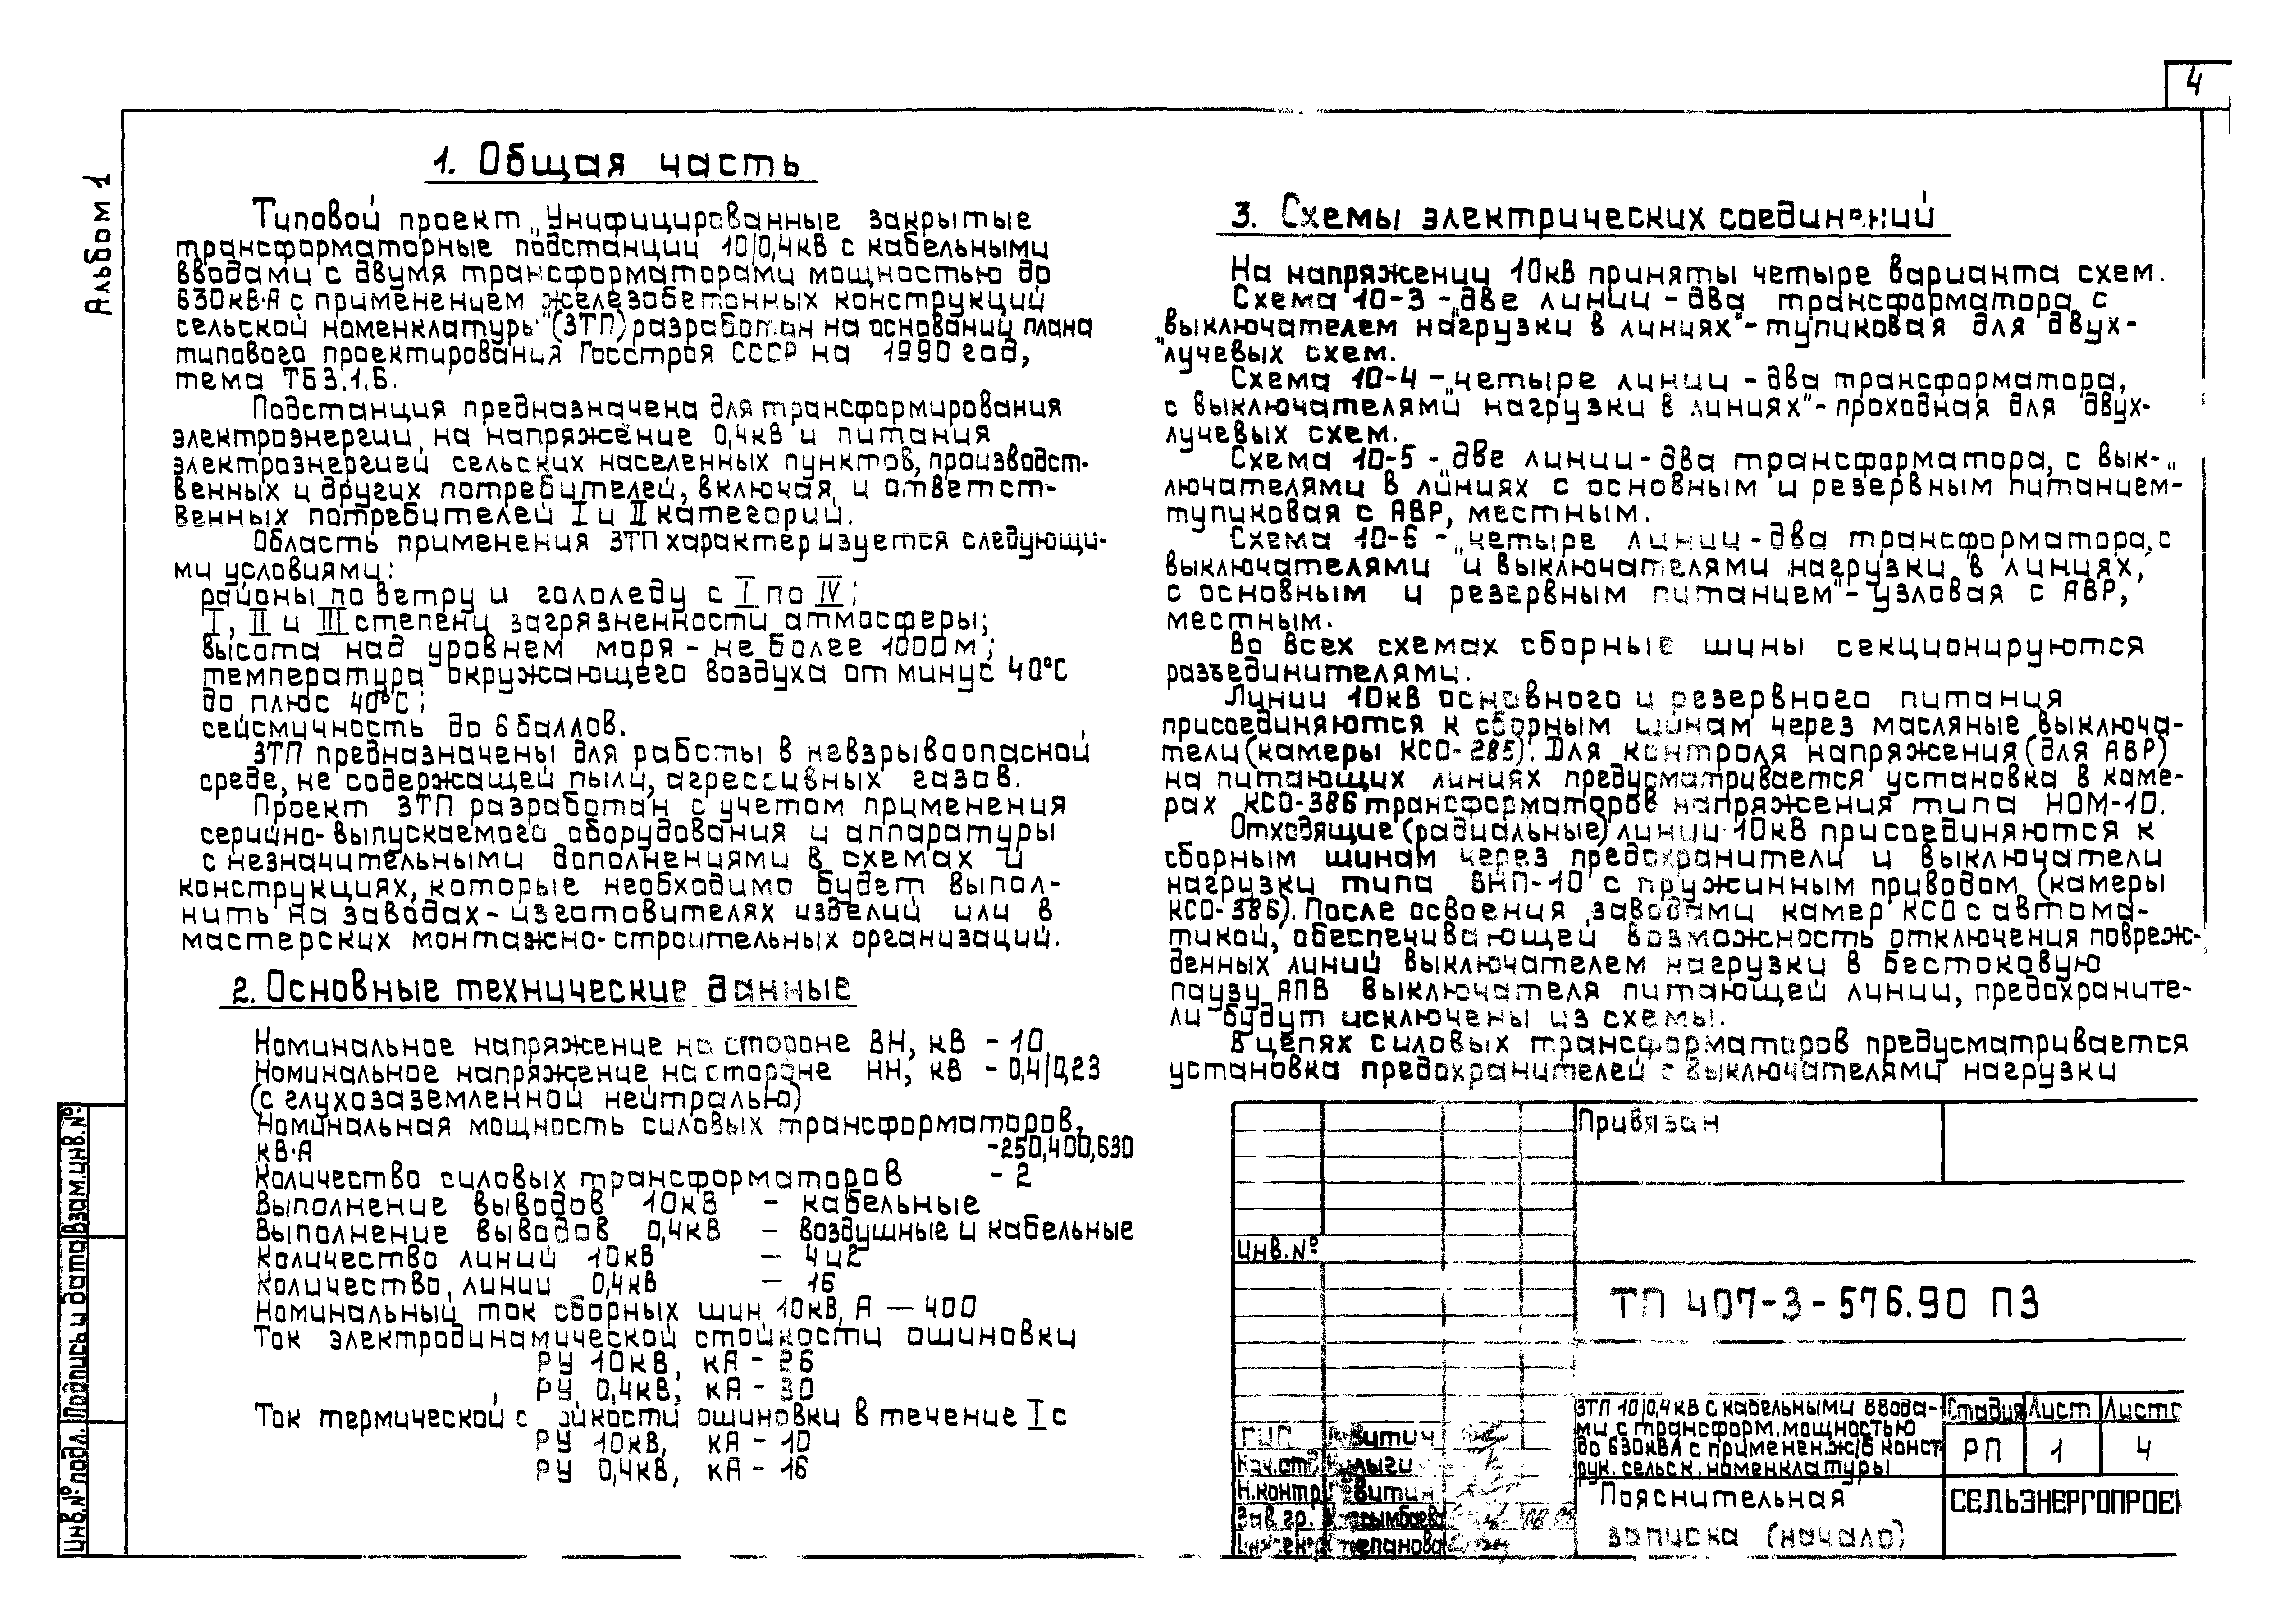 4
Альбом 1
1. Общая часть
Типовой проект „Унифицированные закрытые
трансформаторные подстанции 10/0,4кВ с кабельными
вводами с двумя трансформаторами мощностью до
630кВ·А с применением железобетонных конструкций
сельской номенклатуры" (ЗТП) разработан на основании плана
типового проектирования Госстроя СССР на 1990 год,
тема Т63.1.6.
Подстанция предназначена для трансформирования
электроэнергии на напряжение 0,4кВ и питания
электроэнергией сельских населенных пунктов, производст-
венных и других потребителей, включая и ответст-
венных потребителей I и II категорий.
Область применения ЗТП характеризуется следующи-
ми условиями:
районы по ветру и гололеду с I по IV;
I, II и III степени загрязненности атмосферы;
высота над уровнем моря - не более 1000м;
температура окружающего воздуха от минус 40°С
до плюс 40°С;
сейсмичность до 6 баллов.
ЗТП предназначены для работы в невзрывоопасной
среде, не содержащей пыли, агрессивных газов.
Проект ЗТП разработан с учетом применения
серийно-выпускаемого оборудования и аппаратуры
с незначительными дополнениями в схемах и
конструкциях, которые необходимо будет выпол-
нить на заводах-изготовителях изделий или в
мастерских монтажно-строительных организаций.
2. Основные технические данные
Номинальное напряжение на стороне ВН, кВ - 10
Номинальное напряжение на стороне НН, кВ - 0,4/0,23
(с глухозаземленной нейтралью)
Номинальная мощность силовых трансформаторов,
кВ·А -250,400,630
Количество силовых трансформаторов - 2
Выполнение выводов 10кВ - кабельные
Выполнение выводов 0,4кВ - воздушные и кабельные
Количество линий 10кВ - 4и2
Количество линии 0,4кВ - 16
Номинальный ток сборных шин 10кВ, А — 400
Ток электродинамической стойкости ошиновки
РУ 10кВ, кА - 26
РУ 0,4кВ, кА - 30
Ток термической стойкости ошиновки в течение 1с
РУ 10кВ, кА - 10
РУ 0,4кВ, кА - 16
3. Схемы электрических соединений
На напряжении 10кВ приняты четыре варианта схем.
Схема 10-3 - „две линии - два трансформатора с
выключателем нагрузки в линиях" - тупиковая для двух-
лучевых схем.
Схема 10-4 - „четыре линии - два трансформатора,
с выключателями нагрузки в линиях" - проходная для двух-
лучевых схем.
Схема 10-5 - „две линии - два трансформатора, с вык-
лючателями в линиях с основным и резервным питанием"-
тупиковая с АВР, местным.
Схема 10-6 - „четыре линии - два трансформатора, с
выключателями и выключателями нагрузки в линиях,
с основным и резервным питанием" - узловая с АВР,
местным.
Во всех схемах сборные шины секционируются
разъединителями.
Линии 10кВ основного и резервного питания
присоединяются к сборным шинам через масляные выключа-
тели (камеры КСО-285). Для контроля напряжения (для АВР)
на питающих линиях предусматривается установка в каме-
рах КСО-386 трансформаторов напряжения типа НОМ-10.
Отходящие (радиальные) линии 10кВ присоединяются к
сборным шинам через предохранители и выключатели
нагрузки типа ВНП-10 с пружинным приводом (камеры
КСО-386). После освоения заводами камер КСО с автома-
тикой, обеспечивающей возможность отключения повреж-
денных линий выключателем нагрузки в бестоковую
паузу АПВ выключателя питающей линии, предохраните-
ли будут исключены из схемы.
В цепях силовых трансформаторов предусматривается
установка предохранителей с выключателями нагрузки
Привязан
Инв.№
ТП 407-3-576.90 ПЗ
ЗТП 10/0,4кВ с кабельными ввода-
ми с трансформ. мощностью
до 630кВА с применен. ж/б конст
рук. сельск. номенклатуры
Стадия Лист Листо
РП 1 4
Пояснительная
записка (начало)
СЕЛЬЭНЕРГОПРОЕК
ГИП
Нач.отд
Н.контр
Зав.гр.
Инв.№ подл. Подпись и дата Взам.инв.№